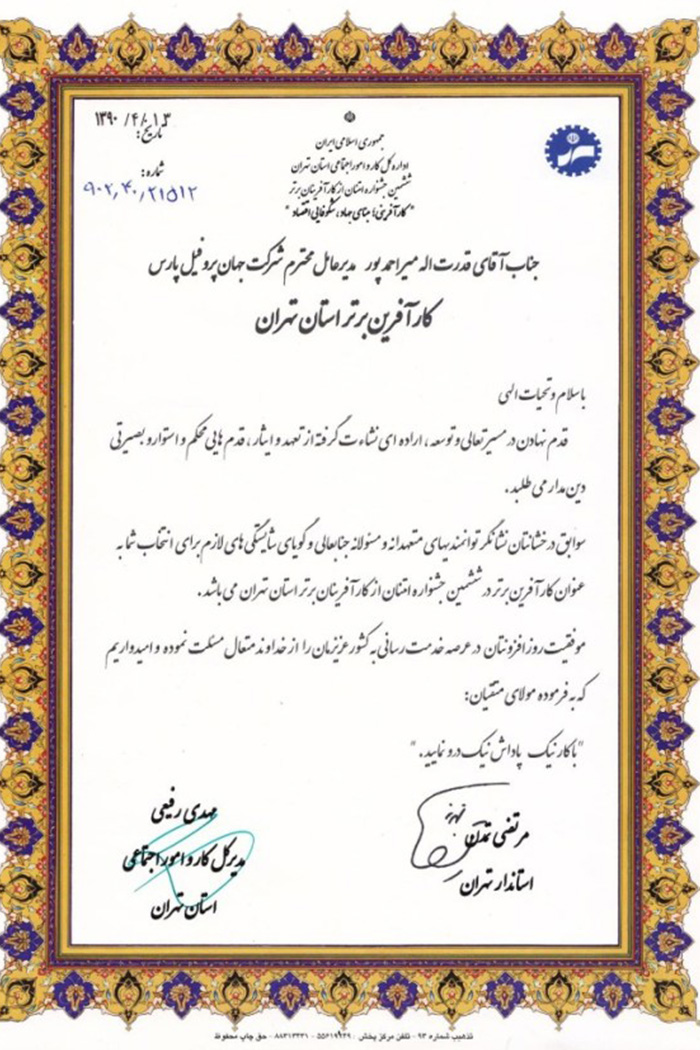 جمهوری اسلامی ایران
اداره کل کار و امور اجتماعی استان تهران
ششمین جشنواره امتنان از کارآفرینان برتر
"کارآفرینی؛ مبنای جهاد، شکوفایی اقتصاد"
تاریخ: ۱۳۹۰/۴/۰۱۳
شماره:
۹۰۲,۴۰,۲۱۵۱۲
جناب آقای قدرت اله میراحمدپور مدیرعامل محترم شرکت جهان پروفیل پارس
کارآفرین برتر استان تهران
با سلام و تحیات الهی
قدم نهادن در مسیر تعالی و توسعه، اراده ای نشاءت گرفته از تعهد و ایثار، قدم هایی محکم و استوار و بصیرتی
دین مدار می طلبد.
سوابق درخشانتان نشانگر توانمندیهای متعهدانه و مسئولانه جنابعالی و گویای شایستگی های لازم برای انتخاب شما به
عنوان کارآفرین برتر در ششمین جشنواره امتنان از کارآفرینان برتر استان تهران می باشد.
موفقیت روزافزونتان در عرصه خدمت رسانی به کشور عزیزمان را از خداوند متعال مسئلت نموده و امیدواریم
که به فرموده مولای متقیان:
"با کار نیک پاداش نیک درو نمایید."
مرتضی تمدن
استاندار تهران
مهدی رفیعی
مدیرکل کار و امور اجتماعی
استان تهران
تذهیب شماره ۹۳ - تلفن مرکز پخش : ۵۵۶۱۹۹۴۹ - ۸۸۳۱۳۳۳۱ - حق چاپ محفوظ